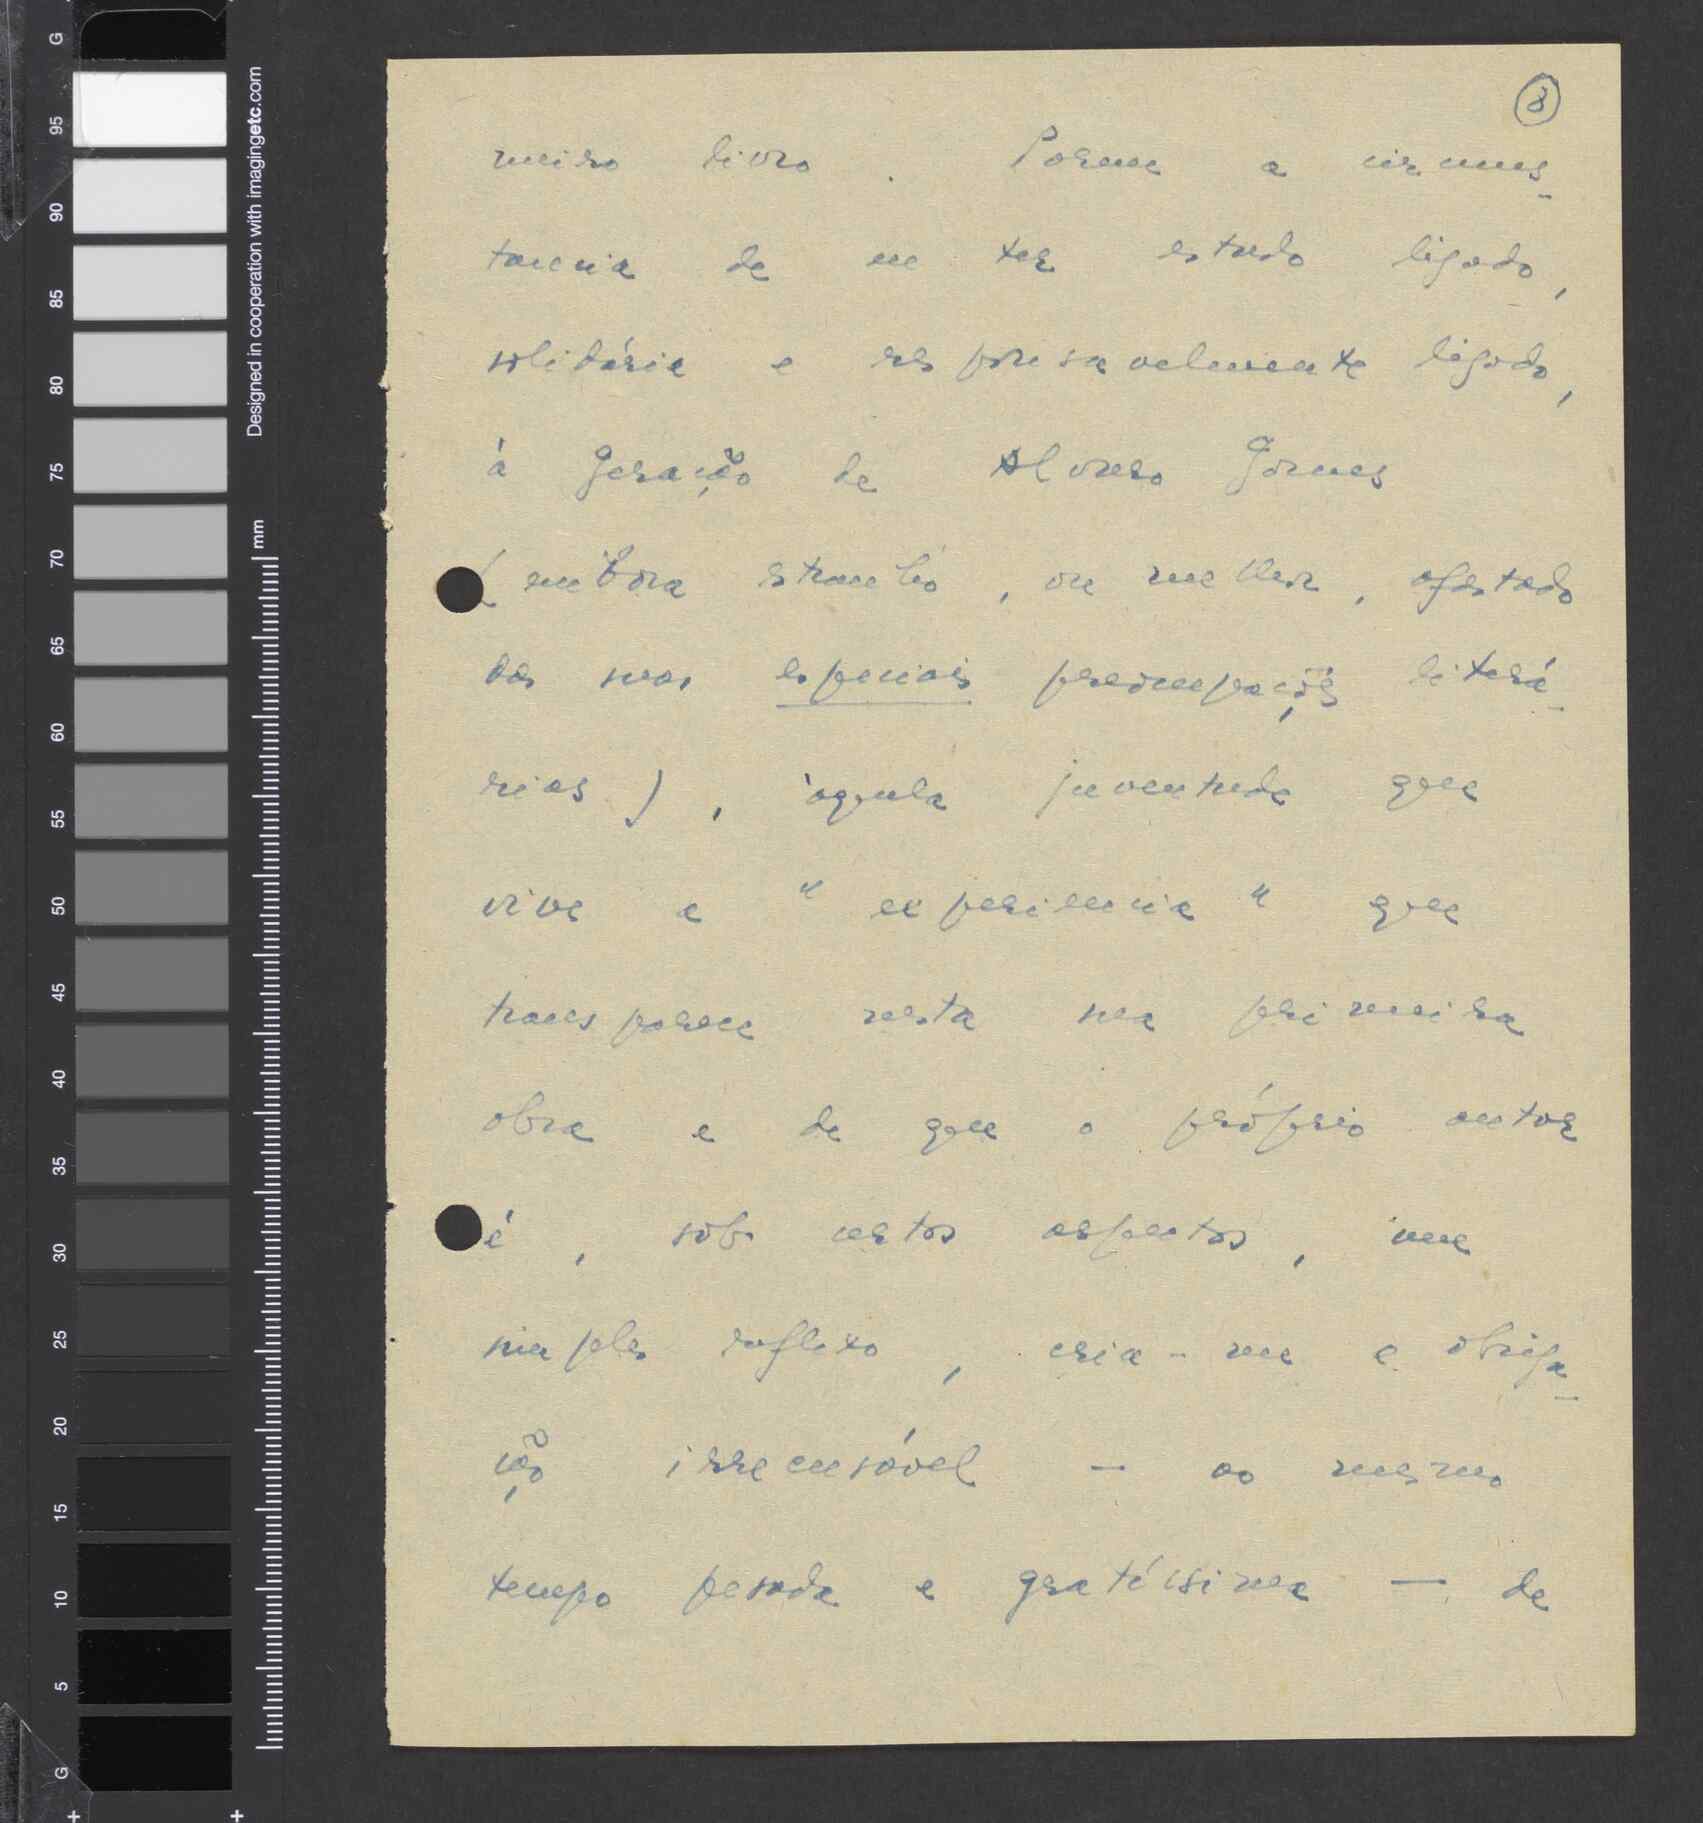 8
meiro livro. Porque a circuns-
tancia de eu ter estado ligado,
solidária e responsavelmente ligado,
à Geração de Alvaro Gomes
(embora estranho, ou melhor, afastado
das suas especiais preocupações literá-
rias), àquela juventude que
vive a "experiencia" que
transparece nesta sua primeira
obra e de que o próprio autor
é, sob certos aspectos, um
simples reflexo, cria-me a obriga-
ção irrecusável — ao mesmo
tempo pesada e gratíssima — de
Designed in cooperation with imagingetc.com
mm
G
95
90
85
80
75
70
65
60
55
50
45
40
35
30
25
20
15
10
5
G